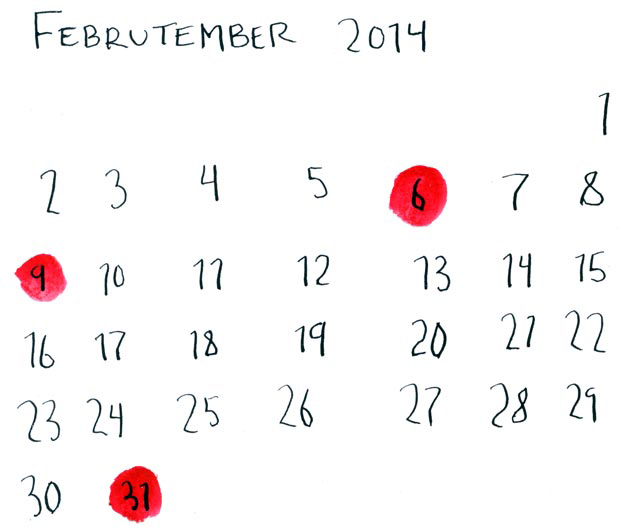 FEBRUTEMBER 2014
1
2 3 4 5 6 7 8
9 10 11 12 13 14 15
16 17 18 19 20 21 22
23 24 25 26 27 28 29
30 31